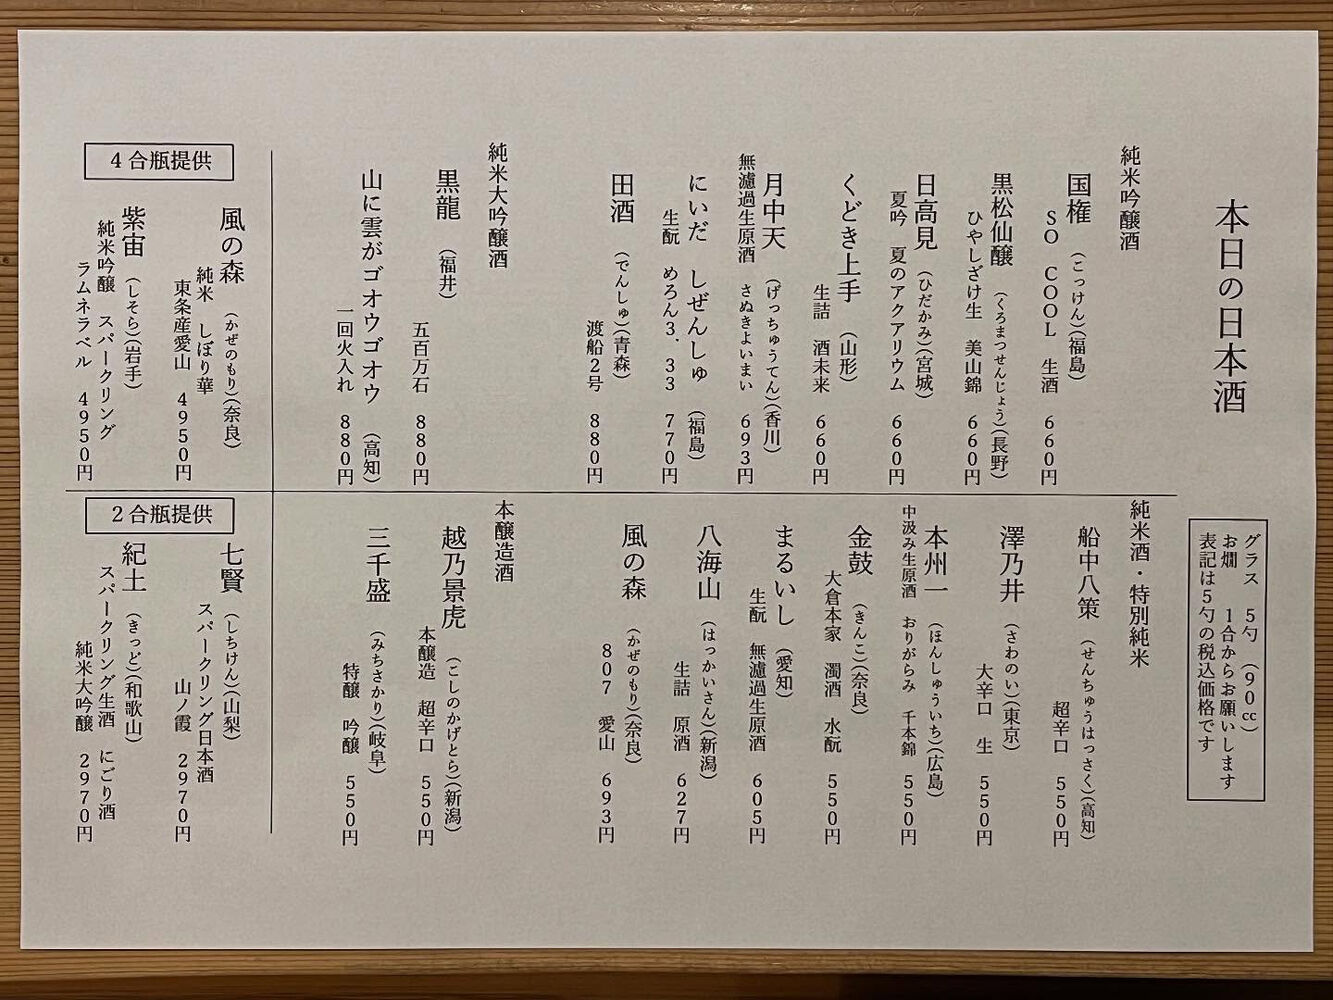 本日の日本酒
グラス 5勺 (90cc)
お燗 1合からお願いします
表記は5勺の税込価格です
純米吟醸酒
国権 (こっけん)(福島)
SO COOL 生酒 660円
黒松仙醸 (くろまつせんじょう)(長野)
ひやしざけ生 美山錦 660円
日高見 (ひだかみ)(宮城)
夏吟 夏のアクアリウム 660円
くどき上手 (山形)
生詰 酒未来 660円
月中天 (げっちゅうてん)(香川)
無濾過生原酒 さぬきよいまい 693円
にいだ しぜんしゅ (福島)
生酛 めろん3.33 770円
田酒 (でんしゅ)(青森)
渡船2号 880円
純米大吟醸酒
黒龍 (福井)
五百万石 880円
山に雲がゴオウゴオウ (高知)
一回火入れ 880円
純米酒・特別純米
船中八策 (せんちゅうはっさく)(高知)
超辛口 550円
澤乃井 (さわのい)(東京)
大辛口 生 550円
本州一 (ほんしゅういち)(広島)
中汲み生原酒 おりがらみ 千本錦 550円
金鼓 (きんこ)(奈良)
大倉本家 濁酒 水酛 550円
まるいし (愛知)
生酛 無濾過生原酒 605円
八海山 (はっかいさん)(新潟)
生詰 原酒 627円
風の森 (かぜのもり)(奈良)
807 愛山 693円
本醸造酒
越乃景虎 (こしのかげとら)(新潟)
本醸造 超辛口 550円
三千盛 (みちさかり)(岐阜)
特醸 吟醸 550円
4合瓶提供
風の森 (かぜのもり)(奈良)
純米 しぼり華
東条産愛山 4950円
紫宙 (しそら)(岩手)
純米吟醸 スパークリング
ラムネラベル 4950円
2合瓶提供
七賢 (しちけん)(山梨)
スパークリング日本酒
山ノ霞 2970円
紀土 (きっど)(和歌山)
スパークリング生酒 にごり酒
純米大吟醸 2970円